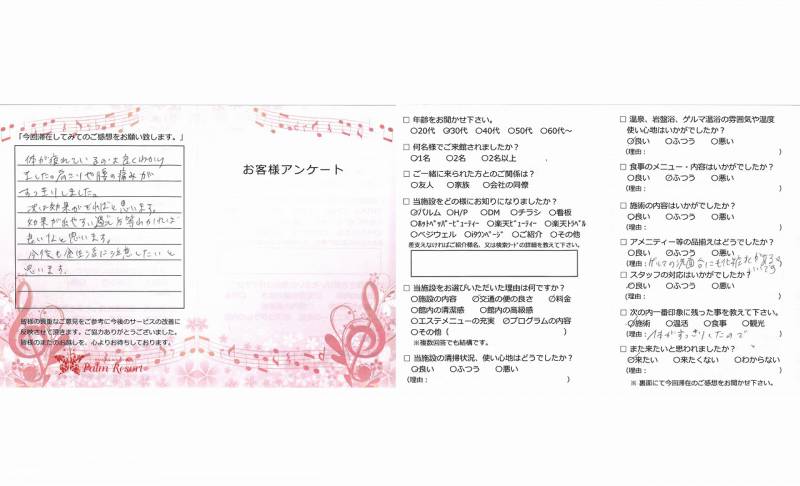 「今回滞在してみてのご感想をお願い致します。」
体が疲れているのは良くわかり
ました。肩こりや腰の痛みが
すっきりしました。
次は効果がでればと思います。
効果が出やすい過え方等わかれば
良いなと思います。
今後も
思います。
皆様の貴重なご意見をご参考に今後のサービスの改善に
反映させて頂きます。ご協力ありがとうございました。
皆様のまたのお越しを、心よりお待ちしております。
Palm Resort
お客様アンケート
□ 年齢をお聞かせ下さい。
○20代 ○30代 ○40代 ○50代 ○60代～
□ 何名様でご来館されましたか？
○1名 ○2名 ○2名以上
□ ご一緒に来られた方とのご関係は？
○友人 ○家族 ○会社の同僚
□ 当施設をどの様にお知りになりましたか？
○パルム ○H/P ○DM ○チラシ ○看板
○ﾎｯﾄﾍﾟｯﾊﾟｰﾋﾞｭｰﾃｨｰ ○楽天ﾋﾞｭｰﾃｨｰ ○楽天ﾄﾗﾍﾞﾙ
○ベジウェル ○iﾀｳﾝﾍﾟｰｼﾞ ○ご紹介 ○その他
差支えなければご紹介様名、又は検索ﾜｰﾄﾞの詳細を教えて下さい。
□ 当施設をお選びいただいた理由は何ですか？
○施設の内容 ○交通の便の良さ ○料金
○館内の清潔感 ○館内の高級感
○エステメニューの充実 ○プログラムの内容
○その他（ ）
※複数回答でも結構です。
□ 当施設の清掃状況、使い心地はどうでしたか？
○良い ○ふつう ○悪い
(理由： )
□ 温泉、岩盤浴、ゲルマ温浴の雰囲気や温度
使い心地はいかがでしたか？
○良い ○ふつう ○悪い
(理由： )
□ 食事のメニュー・内容はいかがでしたか？
○良い ○ふつう ○悪い
(理由： )
□ 施術の内容はいかがでしたか？
○良い ○ふつう ○悪い
(理由： )
□ アメニティー等の品揃えはどうでしたか？
○良い ○ふつう ○悪い
(理由：ゲルマの洗面台にも化粧水が
□ スタッフの対応はいかがでしたか？
○良い ○ふつう ○悪い
(理由： )
□ 次の内一番印象に残った事を教えて下さい。
○施術 ○温活 ○食事 ○観光
(理由：体がすっきりしたので )
□ また来たいと思われましたか？
○来たい ○来たくない ○わからない
(理由： )
※ 裏面にて今回滞在のご感想をお聞かせ下さい。